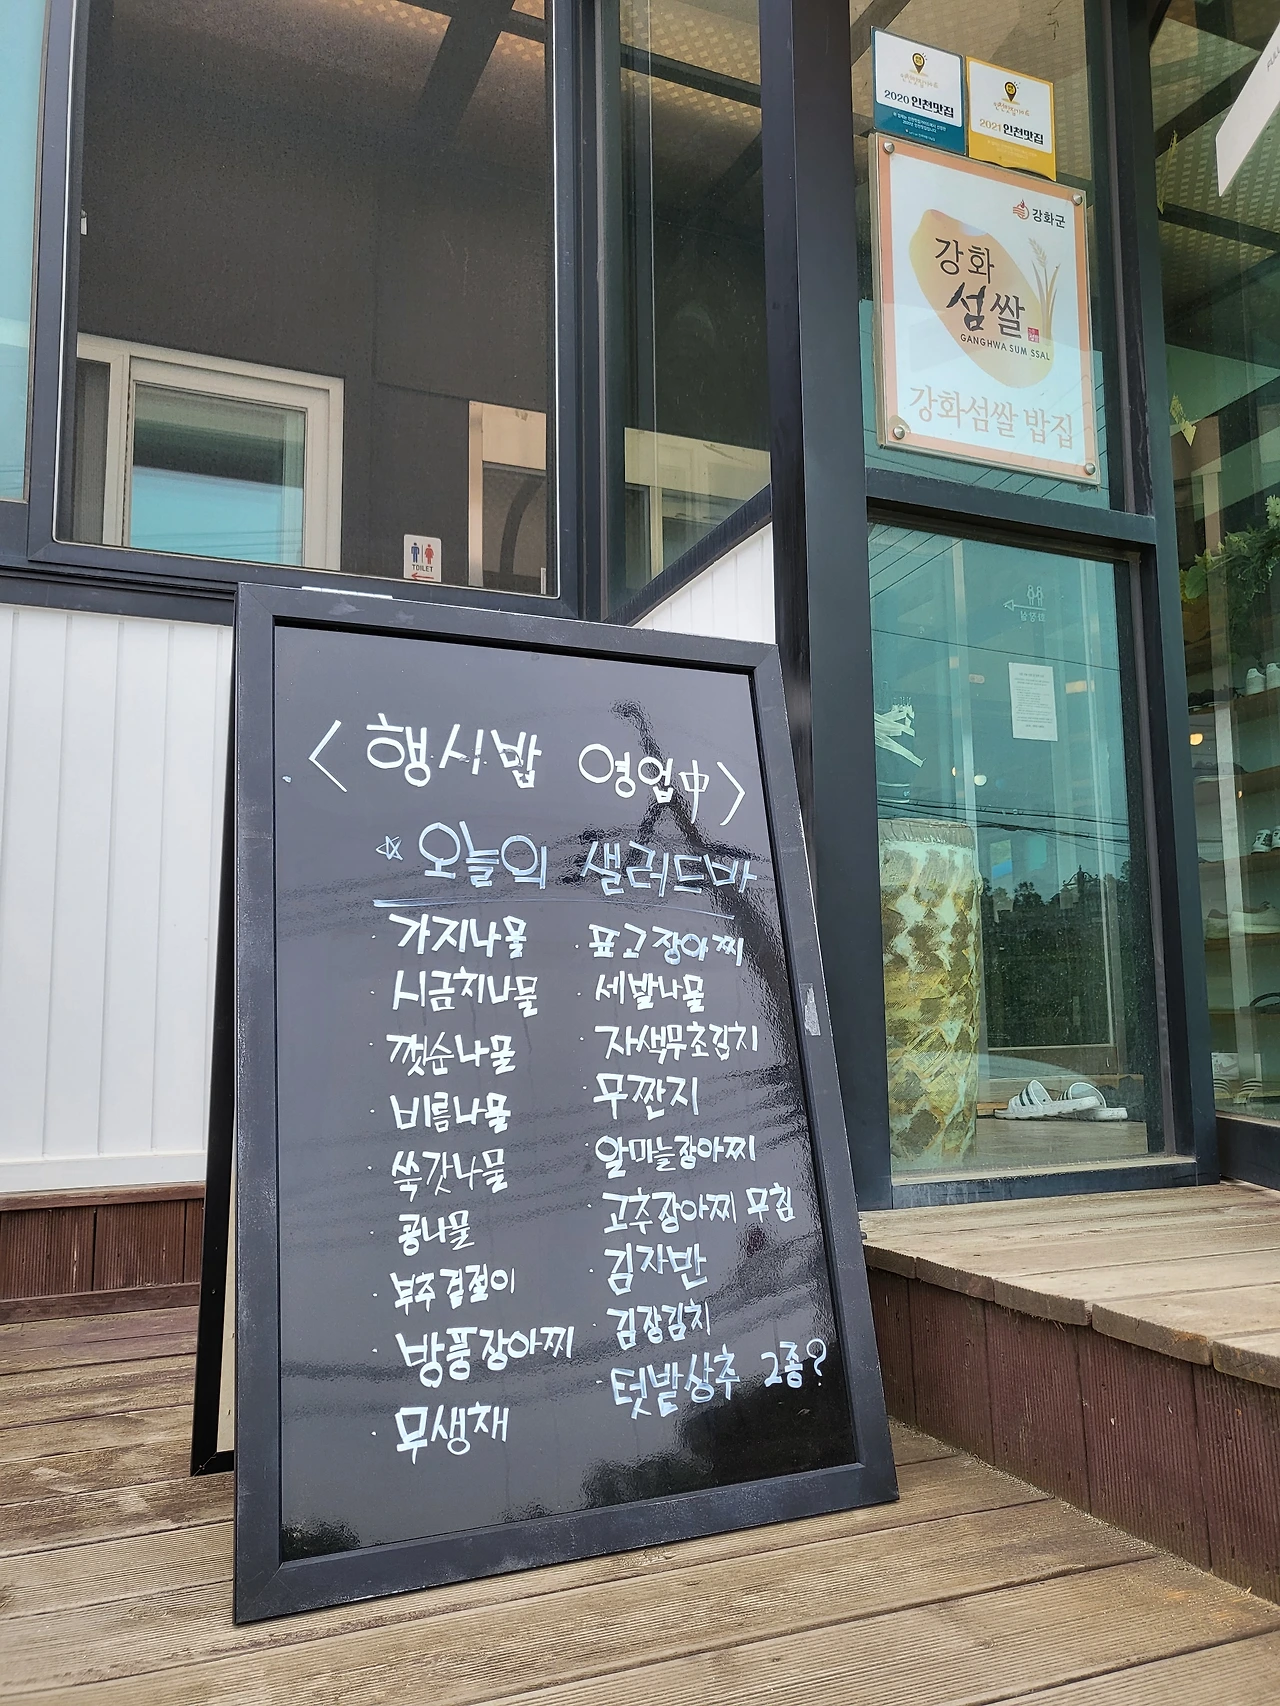 2020 인천맛집
2021 인천맛집
강화군
강화
섬쌀
GANGHWA SUM SSAL
강화섬쌀 밥집
TOILET
<행시밥 영업中>
☆ 오늘의 샐러드바
· 가지나물
· 시금치나물
· 깻순나물
· 비름나물
· 쑥갓나물
· 콩나물
· 부추겉절이
· 방풍장아찌
· 무생채
· 표고장아찌
· 세발나물
· 자색무초김치
· 무짠지
· 알마늘장아찌
· 고추장아찌 무침
· 김자반
· 김장김치
· 텃밭상추 2종?